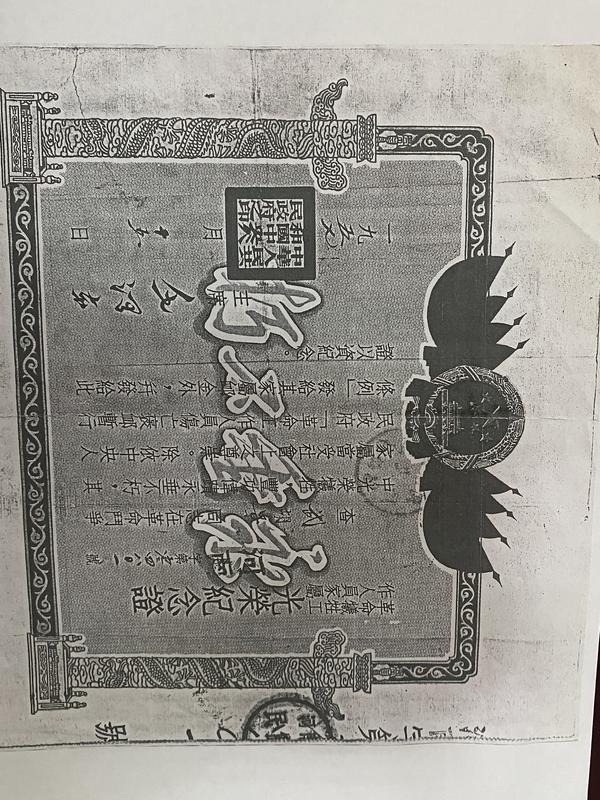 革命犧牲工
作人員家屬
光榮紀念證
查
同志在革命鬥爭
中光榮犧牲，豐功偉績永垂不朽，其
家屬當受社會上之尊崇。除依中央人
民政府「革命工作人員傷亡褒卹暫行
條例」發給其家屬卹金外，并發給此
證以資紀念。
主席
毛澤東
月
日
中華人民共和國中央人民政府之印
永垂不朽
號